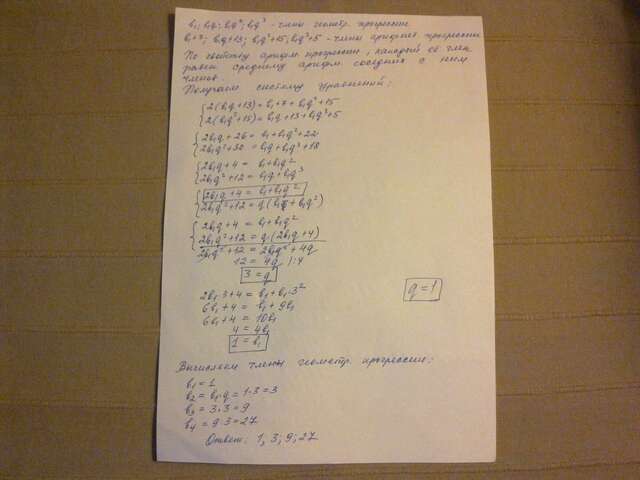 b₁; b₁q; b₁q²; b₁q³ - члены геометр. прогрессии
b₁+7; b₁q+13; b₁q²+15; b₁q³+5 - члены арифмет прогрессии
По свойству арифм прогрессии, каждый её член
равен среднему арифм. соседних с ним
членов.
Получаем систему уравнений:
{2(b₁q+13) = b₁+7+b₁q²+15
{2(b₁q²+15) = b₁q+13+b₁q³+5
{2b₁q+26 = b₁+b₁q²+22
{2b₁q²+30 = b₁q+b₁q³+18
{2b₁q+4 = b₁+b₁q²
{2b₁q²+12 = b₁q+b₁q³
{2b₁q+4 = b₁+b₁q²
{2b₁q²+12 = q(b₁+b₁q²)
{2b₁q+4 = b₁+b₁q²
{2b₁q²+12 = q·(2b₁q+4)
2b₁q²+12 = 2b₁q²+4q
12 = 4q |:4
3 = q
q=1
2b₁·3+4 = b₁+b₁·3²
6b₁+4 = b₁+9b₁
6b₁+4 = 10b₁
4 = 4b₁
1 = b₁
Вычисляем члены геометр. прогрессии:
b₁ = 1
b₂ = b₁·q = 1·3 = 3
b₃ = 3·3 = 9
b₄ = 9·3 = 27
Ответ: 1, 3; 9; 27